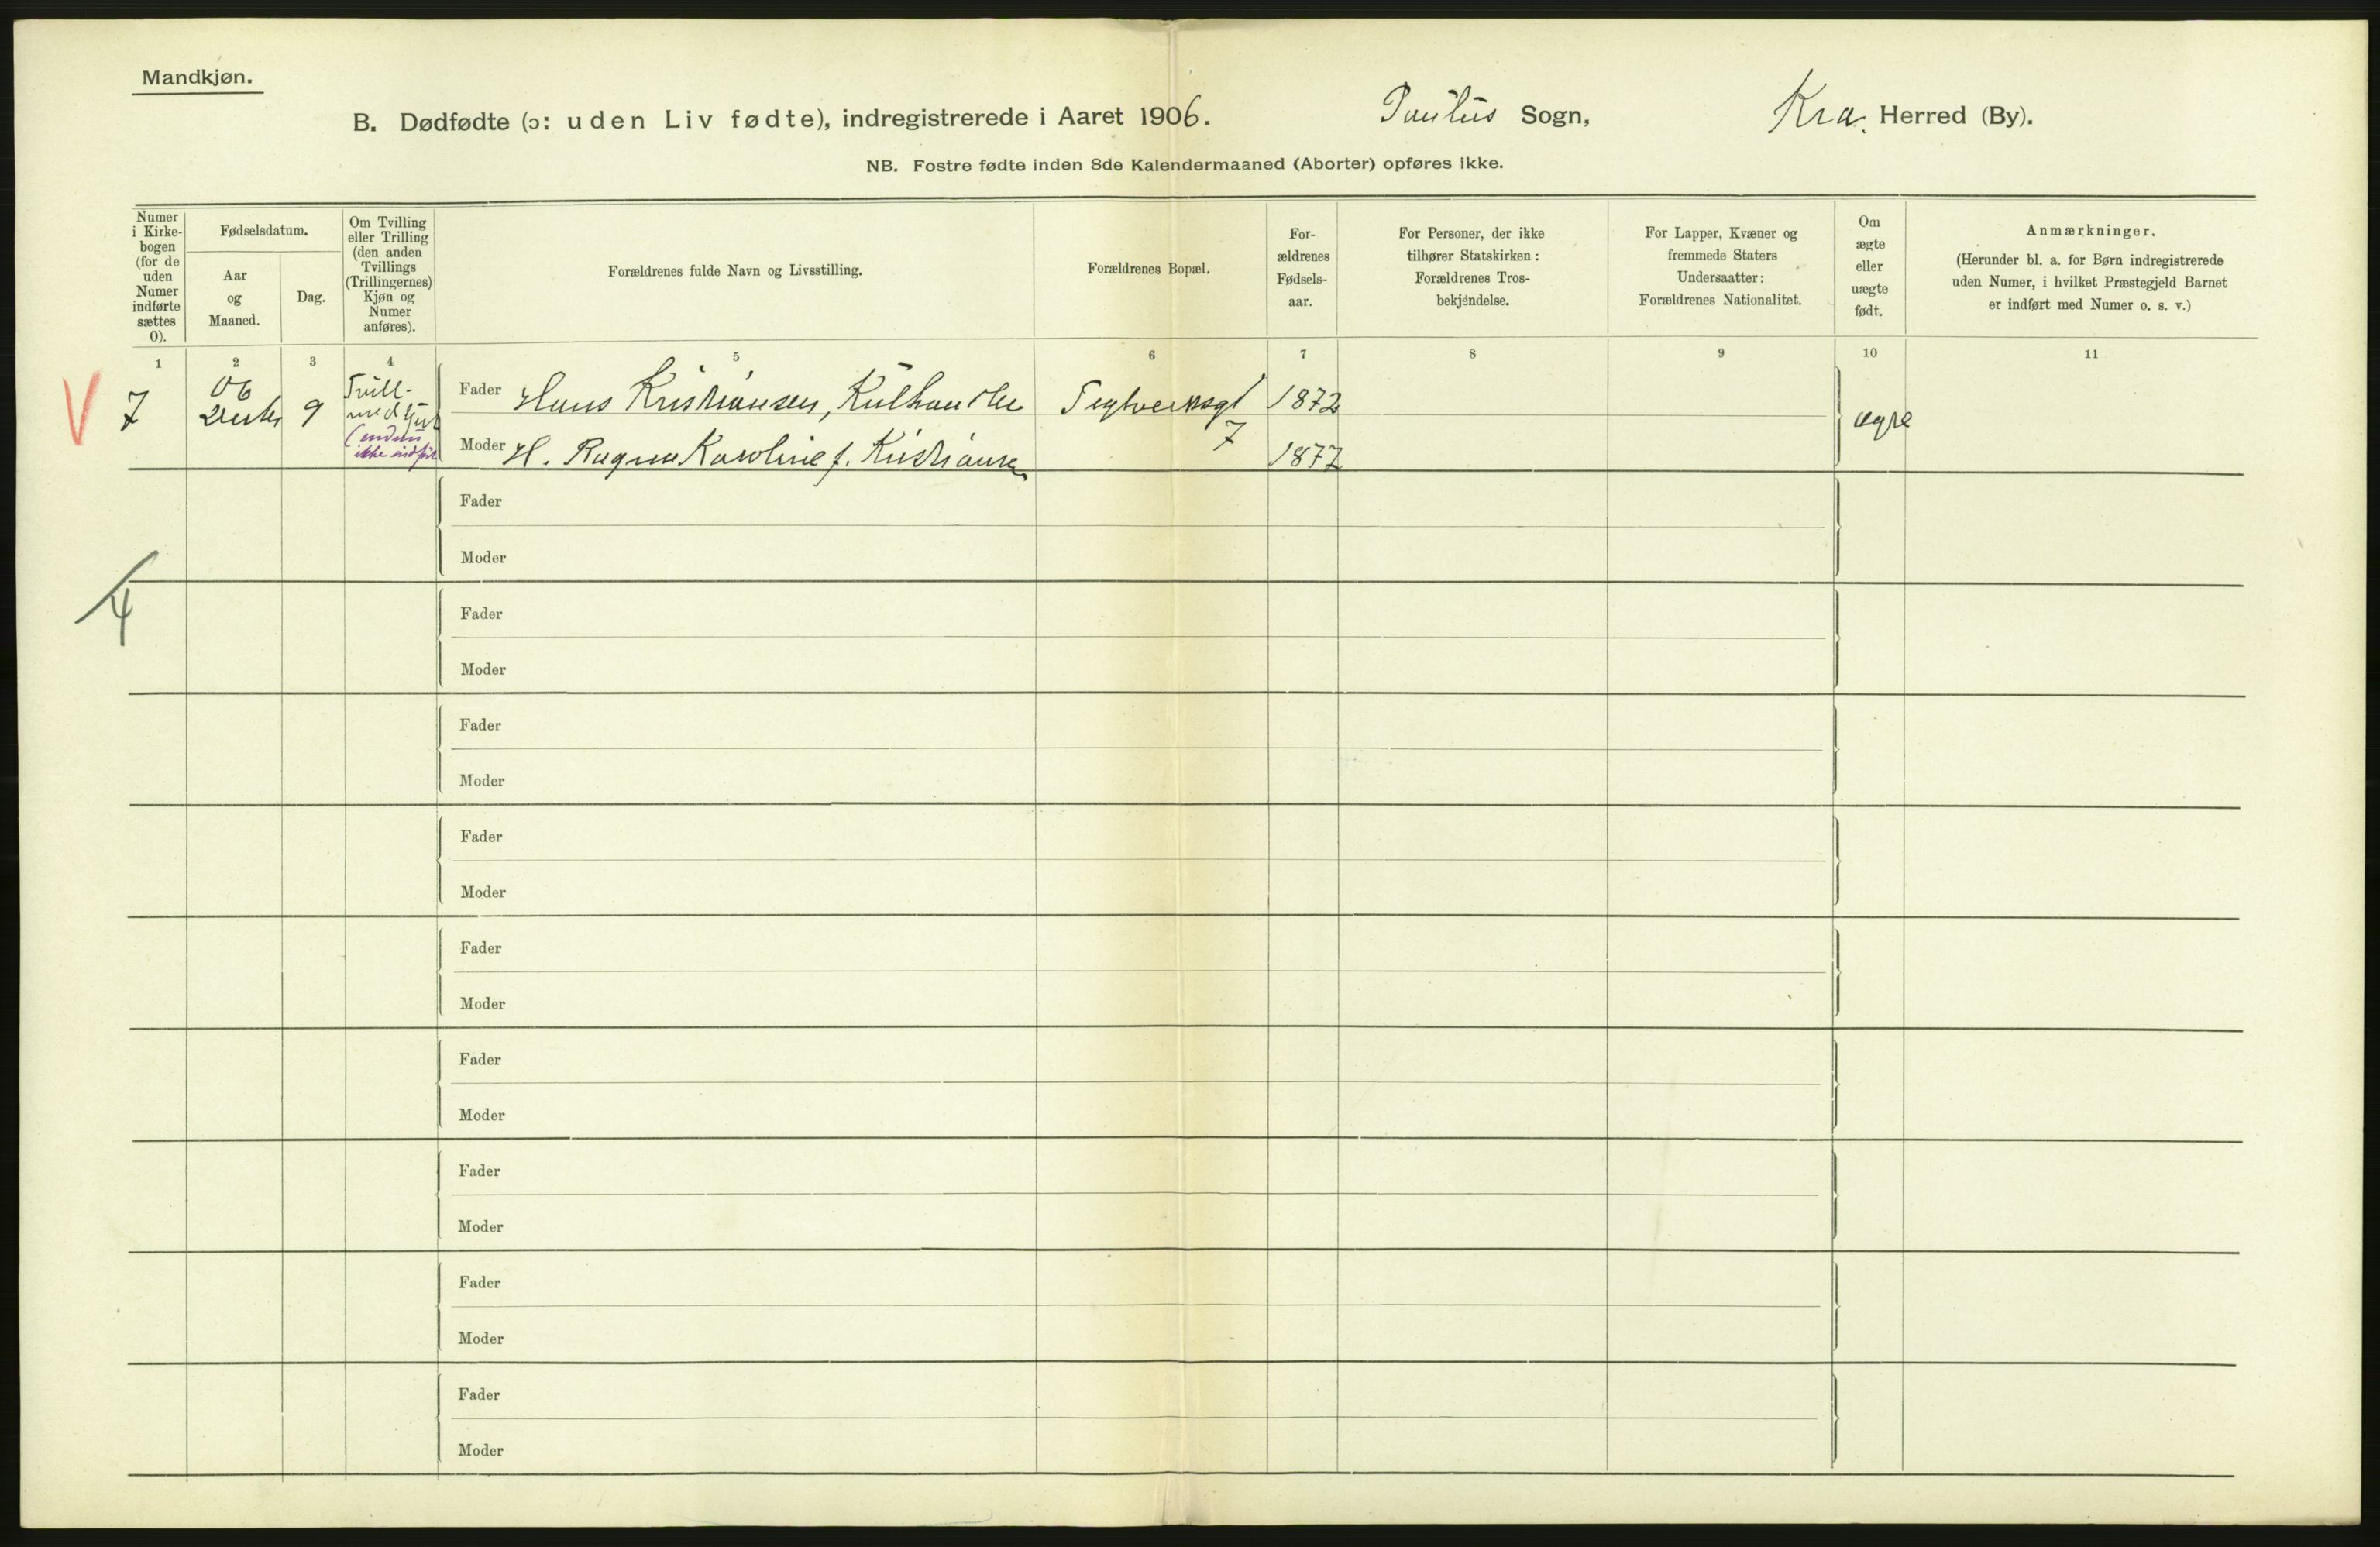 Mandkjøn.
B. Dødfødte (ɔ: uden Liv fødte), indregistrerede i Aaret 1906. Paulus Sogn, Kra. Herred (By).
NB. Fostre fødte inden 8de Kalendermaaned (Aborter) opføres ikke.
Numer i Kirke-bogen (for de uden Numer indførte sættes 0).
Fødselsdatum.
Aar og Maaned.
Dag.
Om Tvilling eller Trilling (den anden Tvillings (Trillingernes) Kjøn og Numer anføres).
Forældrenes fulde Navn og Livsstilling.
Forældrenes Bopæl.
For-ældrenes Fødsels-aar.
For Personer, der ikke tilhører Statskirken: Forældrenes Tros-bekjendelse.
For Lapper, Kvæner og fremmede Staters Undersaatter: Forældrenes Nationalitet.
Om ægte eller uægte født.
Anmærkninger.
(Herunder bl. a. for Børn indregistrerede uden Numer, i hvilket Præstegjeld Barnet er indført med Numer o. s. v.)
1 2 3 4 5 6 7 8 9 10 11
V 7 06 9 Tvill- med
ikke indført
Fader Hans Kristiansen, Kulhandler Teglverksgt 1872 ægte
7
Moder H. Ragna Karoline f. Kristiansen 1877
Fader
Moder
4
Fader
Moder
Fader
Moder
Fader
Moder
Fader
Moder
Fader
Moder
Fader
Moder
Fader
Moder
Fader
Moder